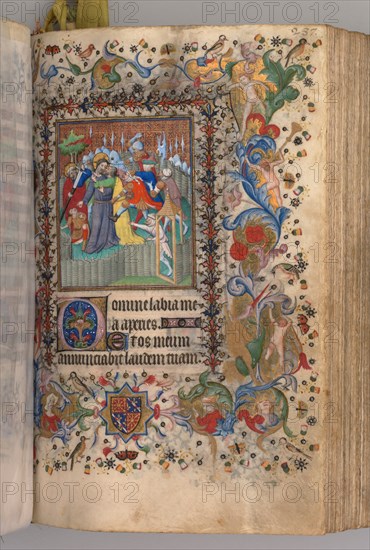 237
Domine labia me
a aperies.
Et os meum
annunciabit laudem tuam
PHOTO 12